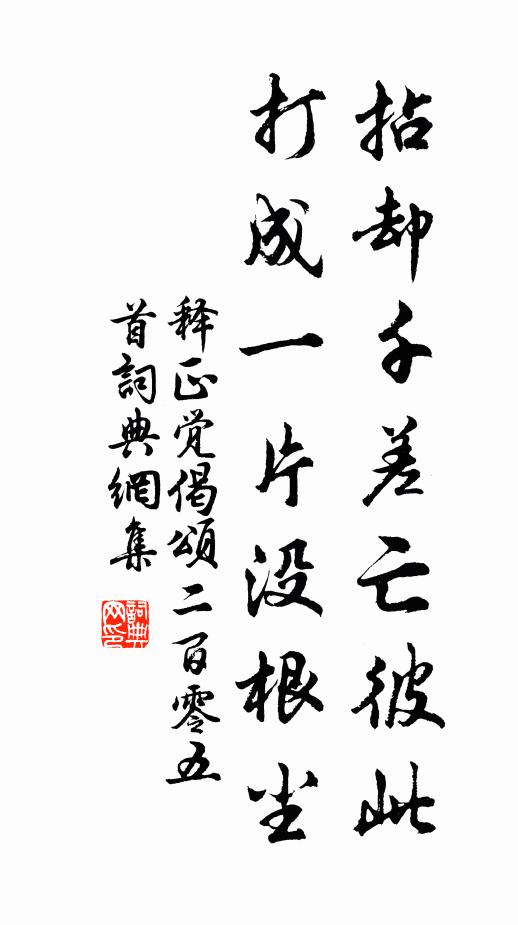 拈却千差亡彼此
打成一片没根尘
释正觉偈頌二百零五
首詞典網集
詞典
网印